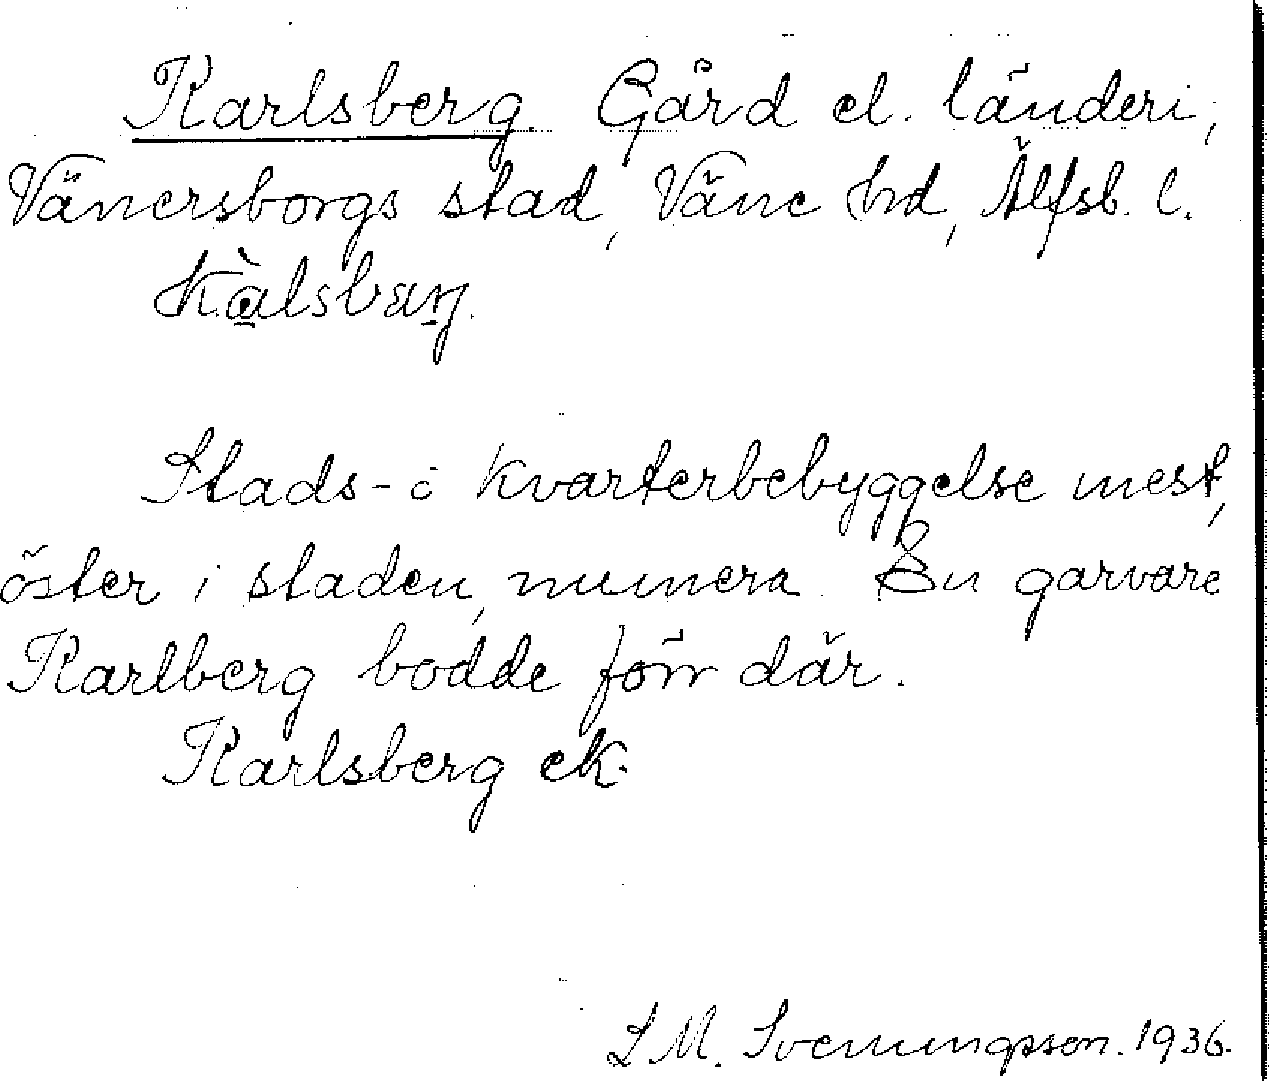 Karlsberg. Gård el. länderi,
Vänersborgs stad, Väne hd, Älfsb. l.
Kàlsbærj.
Stads- o kvarterbebyggelse mest,
öster i staden, numera. En garvare
Karlberg bodde förr där.
Karlsberg ek.
L M. Svenungsson. 1936.